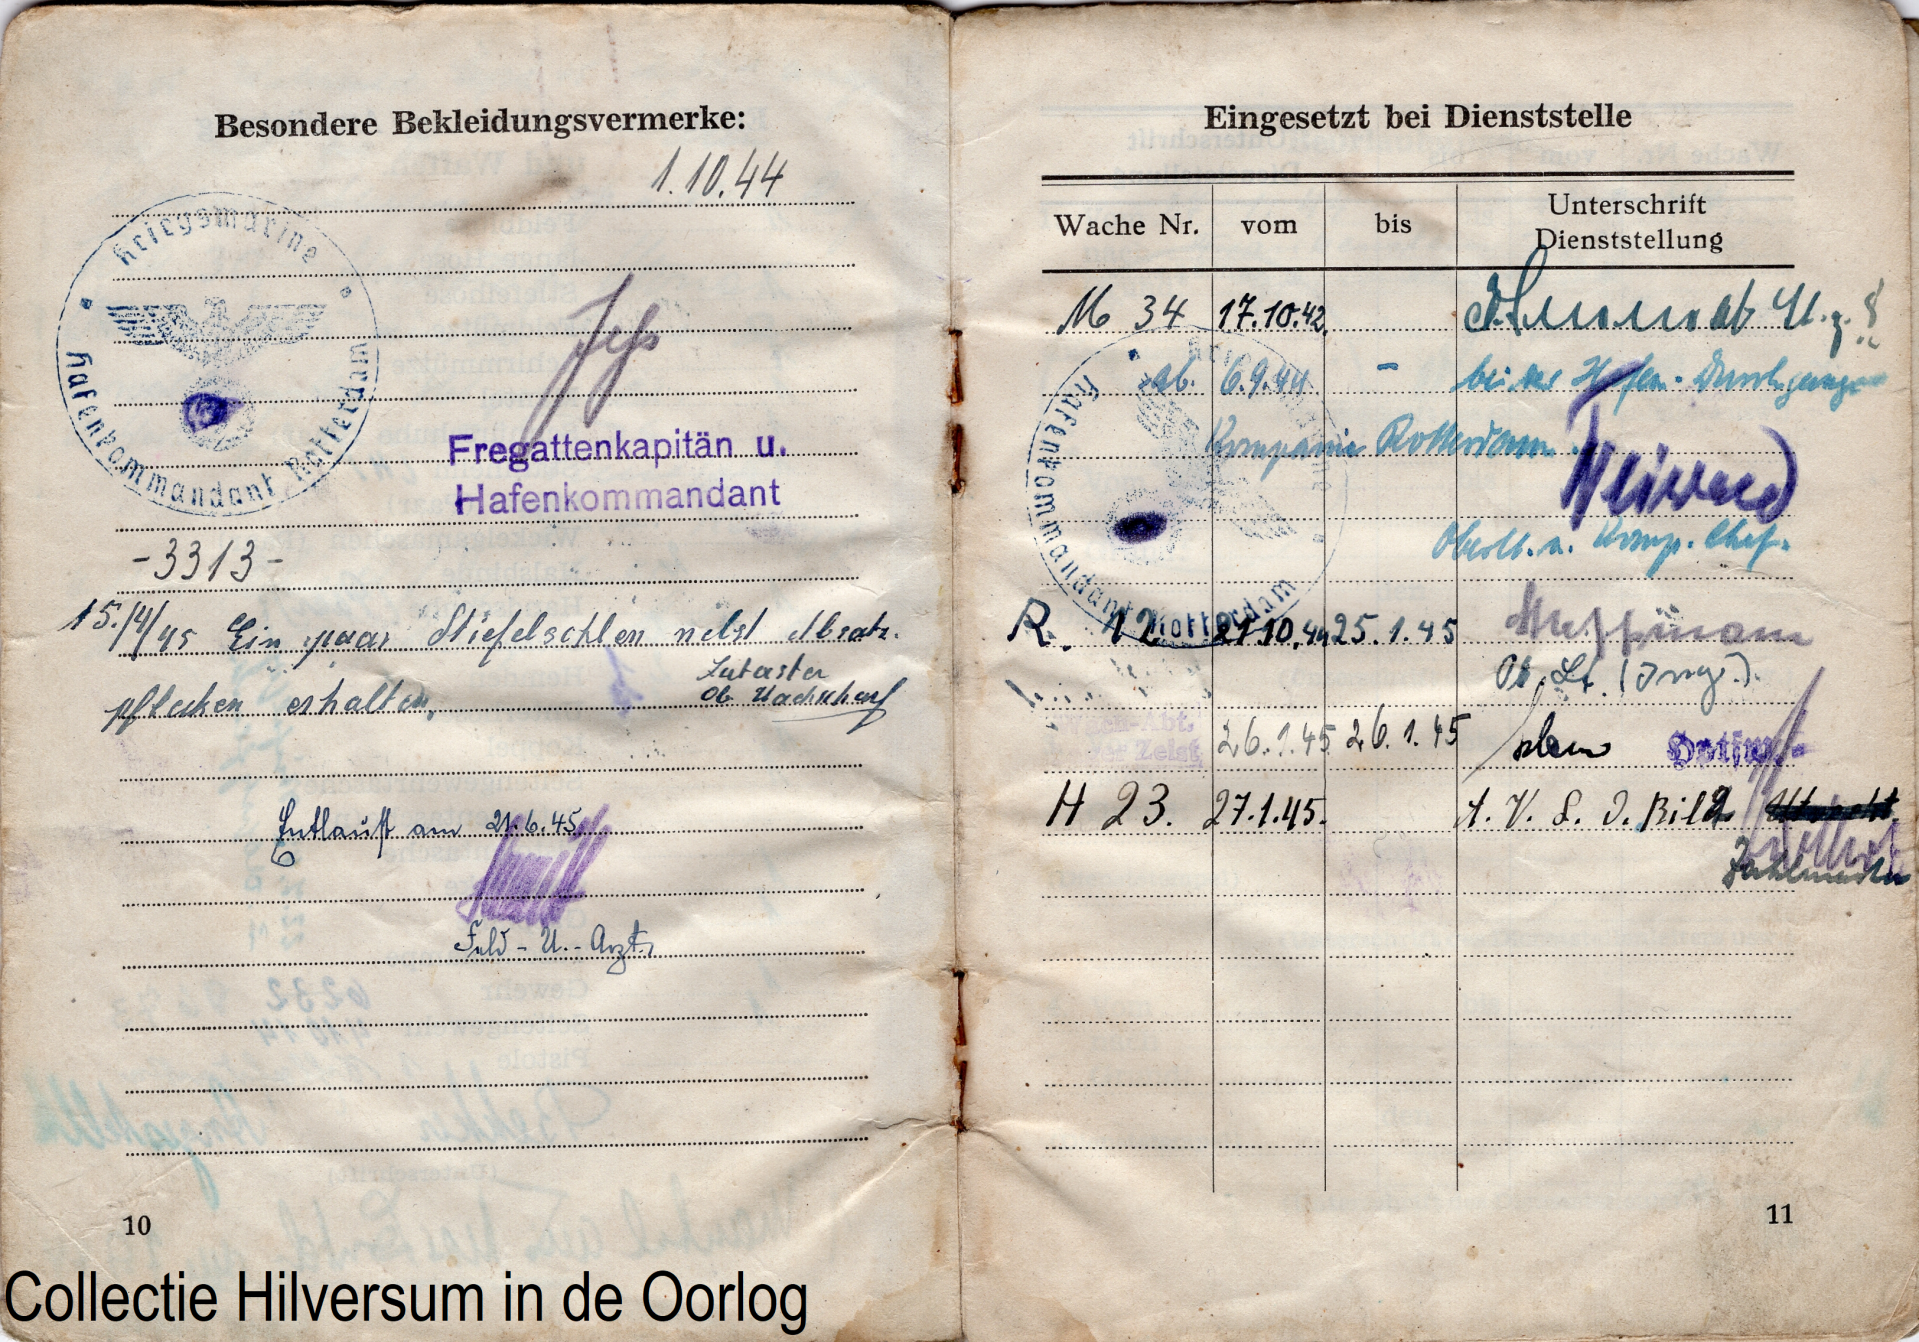 Besondere Bekleidungsvermerke:
1.10.44
Kriegsmarine
Hafenkommandant Rotterdam
Fregattenkapitän u.
Hafenkommandant
-3313-
15./4/45 Ein paar Stiefelsohlen nebst Absatz-
pflecken erhalten.
Ob. Wachm
Entlaust am 21.6.45
Feld-U.-Arzt.
10
Eingesetzt bei Dienststelle
Wache Nr. vom bis Unterschrift Dienststellung
M 34 17.10.42.
ab. 6.9.44 - bei der Hafen-Durchgangs
Kompanie Rotterdam.
Kriegsmarine
Hafenkommandant Rotterdam
Oberlt. u. Komp. Chef.
R. 12 27.10.44 25.1.45
Ob. Lt. (Ing.).
-Abt.
Zeist 26.1.45 26.1.45
H 23. 27.1.45. A. V. L. J. Bild
Zahlmeister
11
Collectie Hilversum in de Oorlog